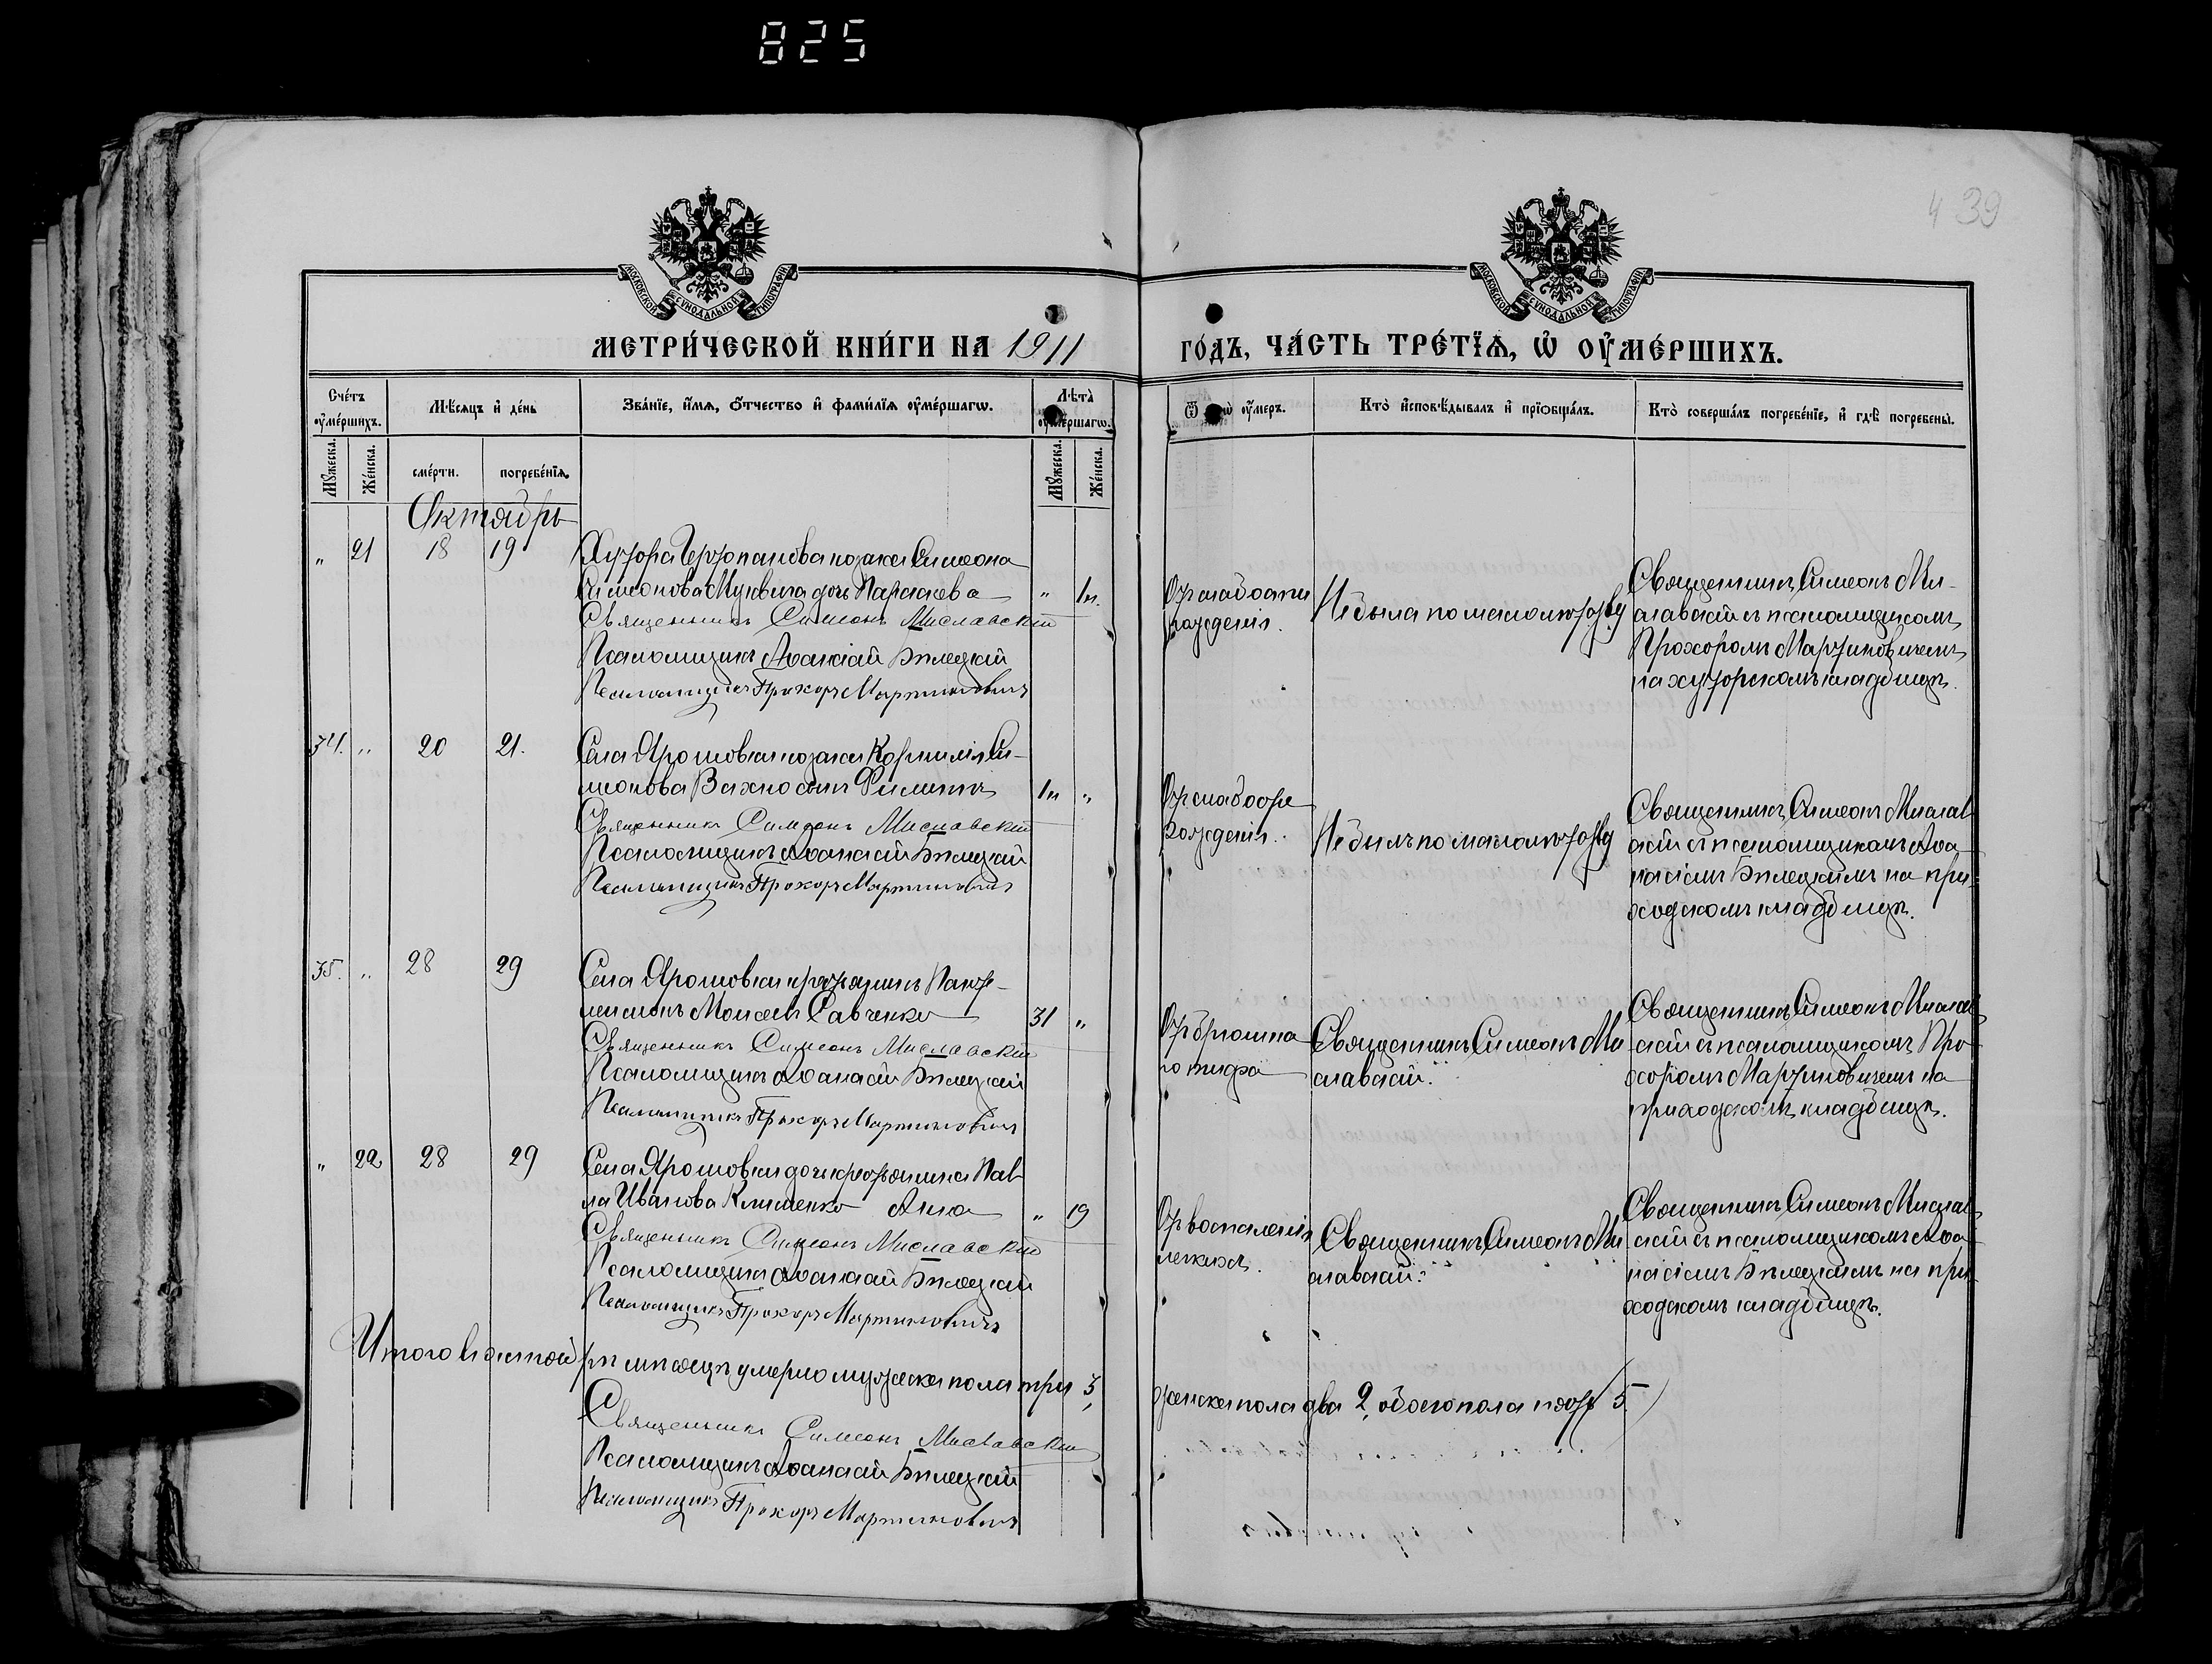 825
4 39
МОСКОВСКОЙ СѴНОДАЛЬНОЙ ТИПОГРАФІИ
МОСКОВСКОЙ СѴНОДАЛЬНОЙ ТИПОГРАФІИ
МЕТРИ́ЧЕСКОЙ КНИ́ГИ НА 1911
ГО́ДЪ, ЧА́СТЬ ТРЕ́ТЇѦ, Ѡ҆ ОУ҆МЕ́РШИХЪ.
Сче́тъ оу҆ме́ршихъ.
Мѣ́сяцъ и҆ де́нь
Зва́нїе, и҆́мѧ, ѻ҆́тчество и҆ фами́лїѧ оу҆ме́ршагѡ.
Лѣ́та̀ оу҆ме́ршагѡ.
оу҆́меръ.
Кто̀ и҆сповѣ́дывалъ и҆ прїѡбща́лъ.
Кто̀ соверша́лъ погребе́нїе, и҆ гдѣ̀ погребены̀.
Мꙋ́жеска.
Же́нска.
сме́рти.
погребе́нїѧ.
Мꙋ́жеска.
Же́нска.
Октябрь
" 21 18 19
Хутора козака Симеона
Симеонова дочь Параскева " 1 н.
Священникъ Симеонъ Миславскій
Псаломщикъ Аѳанасій Бѣлецкій
Псаломщикъ Прохоръ Мартиновичъ
Отъ слабости
рожденія.
Не была по малолѣтству
Священникъ Симеонъ Ми-
славскій съ псаломщикомъ
Прохоромъ Мартиновичемъ
на хуторскомъ кладбищѣ.
34. " 20 21.
Села Ярошовки козака Корнилія Си-
меонова Вахно сынъ Филиппъ 1 н "
Священникъ Симеонъ Миславскій
Псаломщикъ Аѳанасій Бѣлецкій
Псаломщикъ Прохоръ Мартиновичъ
Отъ слабости
рожденія.
Не былъ по малолѣтству
Священникъ Симеонъ Мислав-
скій съ псаломщикомъ Аѳа-
насіемъ Бѣлецкимъ на при-
ходскомъ кладбищѣ.
35. " 28 29
Села Ярошовки крестьянинъ Панте-
леимонъ Моисеевъ Савченко 31 "
Священникъ Симеонъ Миславскій
Псаломщикъ Аѳанасій Бѣлецкій
Псаломщикъ Прохоръ Мартиновичъ
Отъ брюшна-
го тифа
Священникъ Симеонъ Ми-
славскій.
Священникъ Симеонъ Мислав-
скій съ псаломщикомъ Про-
хоромъ Мартиновичемъ на
приходскомъ кладбищѣ.
" 22 28 29
Села Ярошовки дочь крестьянина Пав-
ла Иванова Клименко Анна " 19
Священникъ Симеонъ Миславскій
Псаломщикъ Аѳанасій Бѣлецкій
Псаломщикъ Прохоръ Мартиновичъ
Отъ воспаленія
легкихъ.
Священникъ Симеонъ Ми-
славскій.
Священникъ Симеонъ Мислав-
скій съ псаломщикомъ Аѳа-
насіемъ Бѣлецкимъ на при-
ходскомъ кладбищѣ.
Итого въ октябрѣ мѣсяцѣ умерло мужеска пола три 3,
женска пола два 2, обоего пола пять (5)
Священникъ Симеонъ Миславскій
Псаломщикъ Аѳанасій Бѣлецкій
Псаломщикъ Прохоръ Мартиновичъ